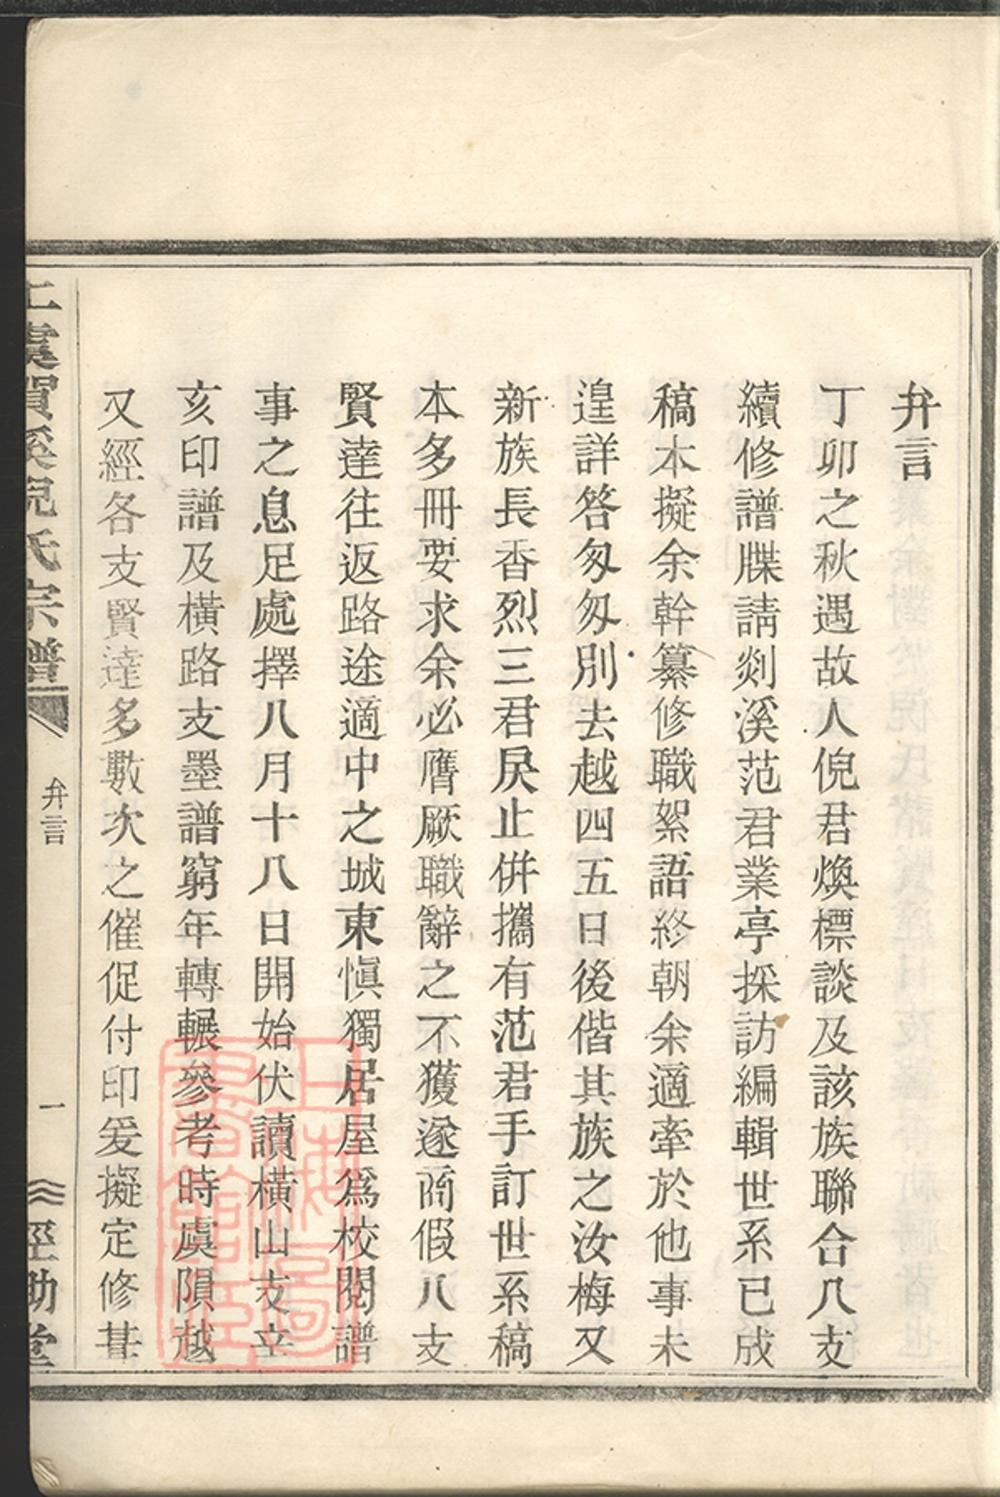 弁言
丁卯之秋遇故人倪君煥標談及該族聯合八支
續修譜牒請剡溪范君業亭採訪編輯世系已成
稿本擬余幹纂修職絮語終朝余適牽於他事未
遑詳答匆匆別去越四五日後偕其族之汝梅又
新族長香烈三君戾止倂攜有范君手訂世系稿
本多冊要求余必膺厥職辭之不獲遂商假八支
賢達往返路途適中之城東愼獨居屋爲校閱譜
事之息足處擇八月十八日開始伏讀橫山支辛
亥印譜及橫路支墨譜窮年轉輾參考時虞隕越
又經各支賢達多數次之催促付印爰擬定修葺
上虞賀溪倪氏宗譜
弁言
一
經助堂
上海圖書館藏